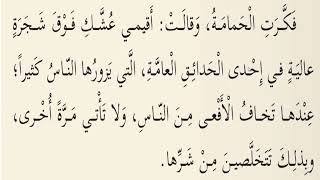 فَكَّرَتِ الْحَمامَةُ، وَقالَتْ: أَقيمي عُشَّكِ فَوْقَ شَجَرَةٍ
عالِيَةٍ في إِحْدى الْحَدائِقِ الْعامَّةِ، الَّتي يَزورُها النّاسُ كَثيراً؛
عِنْدَها تَخافُ الْأَفْعى مِنَ النّاسِ، وَلا تَأْتي مَرَّةً أُخْرى،
وَبِذلِكَ تَتَخَلَّصينَ مِنْ شَرِّها.